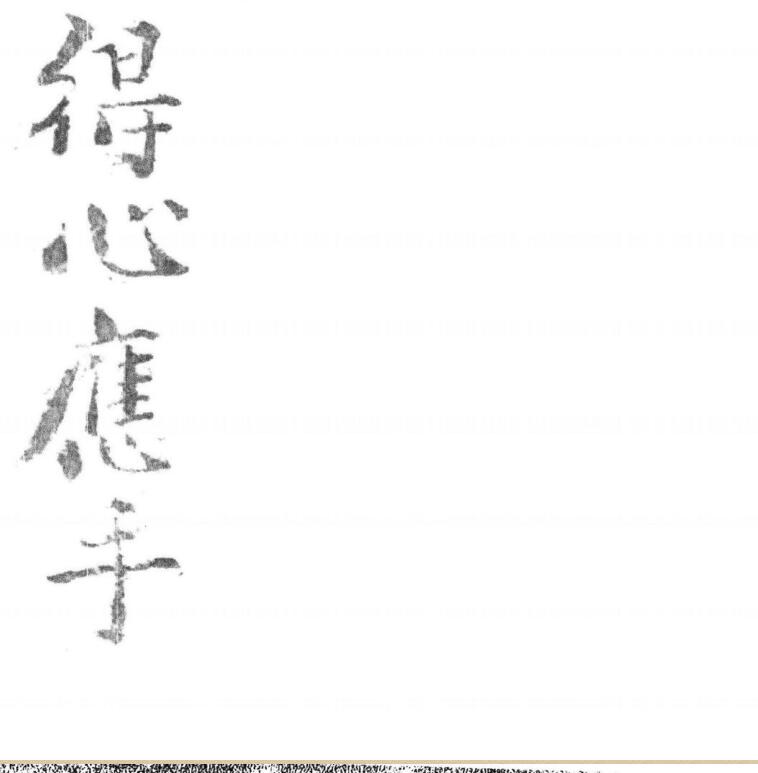 得心應手